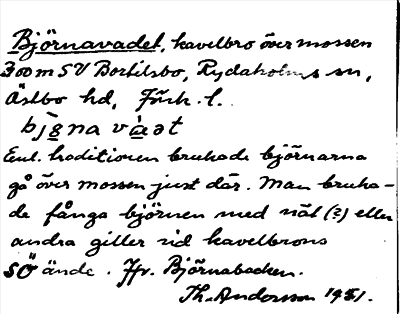 Björnavadet, kavelbro över mossen
300 m SV Bortilsbo, Rydaholms sn,
Östbo hd, Jönk. l.
bjø̀na vàat
Enl. traditionen brukade björnarna
gå över mossen just där. Man bruka-
de fånga björnen med nät (?) eller
andra giller vid kavelbrons
SÖ ände. Jfr. Björnabacken.
Th. Andersson 1951.